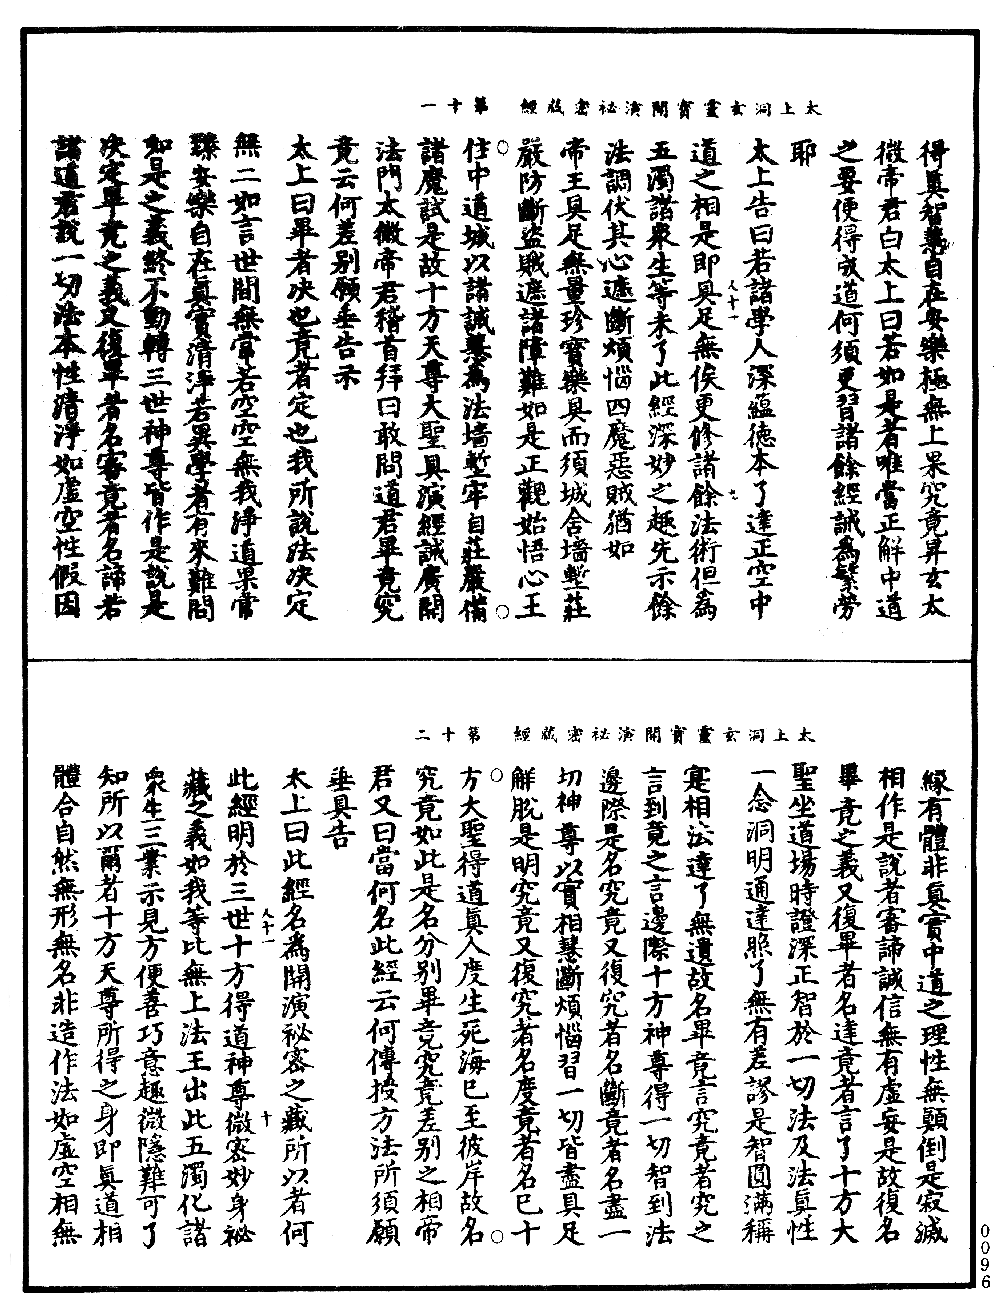 太上洞玄靈寶開演祕密藏經　第十一
得真智慧自在安樂極無上果究竟昇玄太
微帝君白太上曰若如是者唯當正解中道
之要便得成道何須更習諸餘經誡為縈勞
耶
太上告曰若諸學人深蘊德本了達正空中
道之相是即具足無俟更修諸餘法術但為
五濁諸衆生等未了此經深妙之趣先示餘
法調伏其心遮斷煩惱四魔惡賊猶如
帝王具足無量珍寶樂具而須城舍墻塹莊
嚴防斷盜賊遮諸障難如是正觀始悟心王
住中道城以諸誡慧為法墻塹牢自莊嚴備
諸魔試是故十方天尊大聖具演經誡廣開
法門太微帝君稽首拜曰敢問道君畢竟究
竟云何差別願垂告示
太上曰畢者決也竟者定也我所說法決定
無二如言世間無常若空空無我淨道果常
臻安樂自在真實清淨若異學者有來難問
如是之義終不動轉三世神尊皆作是說是
決定畢竟之義又復畢者名審竟者名諦若
諸道君說一切法本性清淨如虛空性假因
八十一
九
太上洞玄靈寶開演祕密藏經　第十二
緣有體非真實中道之理性無顛倒是寂滅
相作是說者審諦誠信無有虛妄是故復名
畢竟之義又復畢者名達竟者言了十方大
聖坐道場時證深正智於一切法及法真性
一念洞明通達照了無有差謬是智圓滿稱
寔相法達了無遺故名畢竟言究竟者究之
言到竟之言邊際十方神尊得一切智到法
邊際是名究竟又復究者名斷竟者名盡一
切神尊以實相慧斷煩惱習一切皆盡具足
解脫是明究竟又復究者名度竟者名已十
方大聖得道真人度生死海已至彼岸故名
究竟如此是名分別畢竟究竟差別之相帝
君又曰當何名此經云何傳授方法所須願
垂具告
太上曰此經名為開演祕密之藏所以者何
此經明於三世十方得道神尊微密妙身祕
藏之義如我等比無上法王出此五濁化諸
衆生三業示見方便善巧意趣微隱難可了
知所以爾者十方天尊所得之身即真道相
體合自然無形無名非造作法如虛空相無
八十一
十
0096